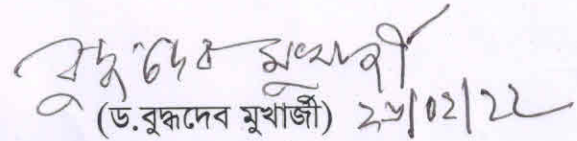 বুদ্ধদেব মুখার্জী
(ড.বুদ্ধদেব মুখার্জী) ২৮/০২/২২